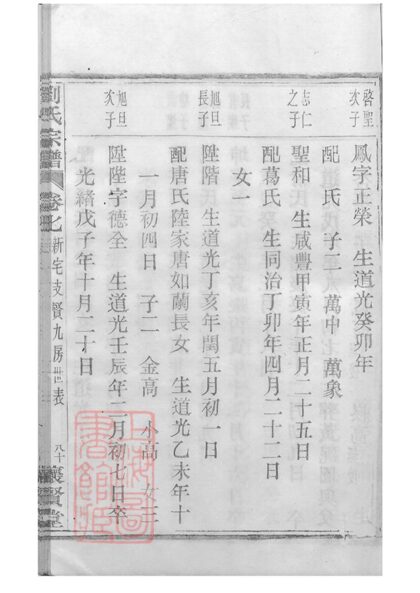 啓聖次子
鳳字正榮 生道光癸卯年
配 氏 子二 萬中 萬象
志仁之子
聖和 生咸豐甲寅年正月二十五日
配葛氏 生同治丁卯年四月二十二日
女一
旭旦長子
陞階 生道光丁亥年閏五月初一日
配唐氏陸家唐如蘭長女 生道光乙未年十
一月初四日 子二 金高 小高 女三
旭旦次子
陞陛字德全 生道光壬辰年二月初七日卒
光緒戊子年十月二十日
劉氏宗譜 卷七 新宅支賢九房世表 八十 褒賢堂
上海圖書館藏